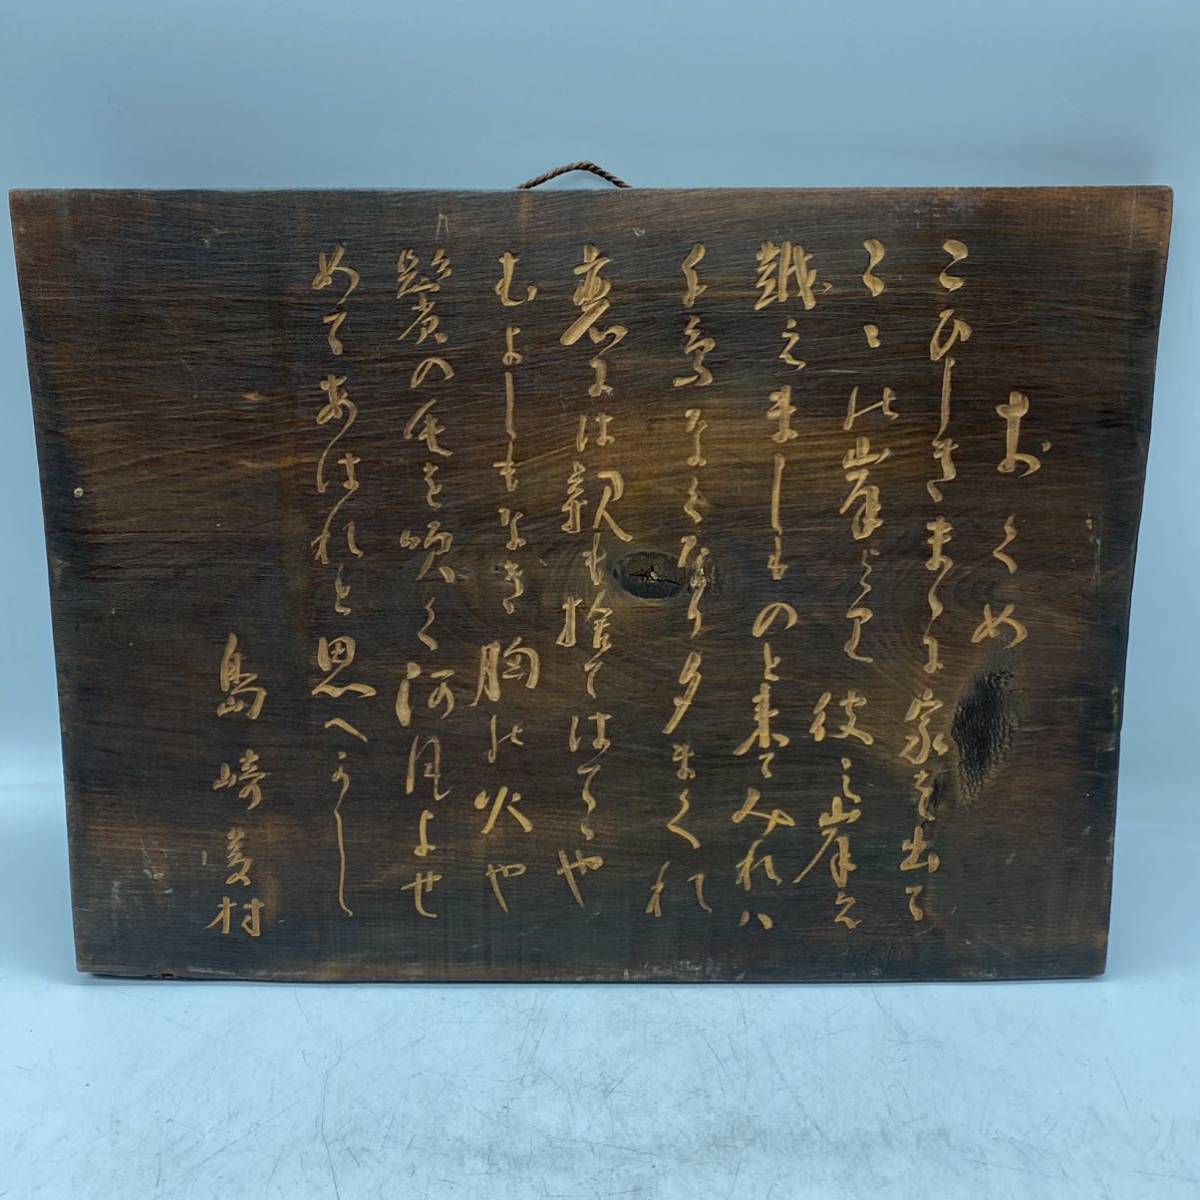 おくめ
こひしきまゝに家を出て
こゝの岸より彼之岸へ
越えましものと来てみれハ
千鳥なくなり夕まくれ
恋には親も捨てはてゝや
むよしもなき胸の火や
鬢の毛を吹く河風よせ
めてあはれと思へかし
島崎藤村